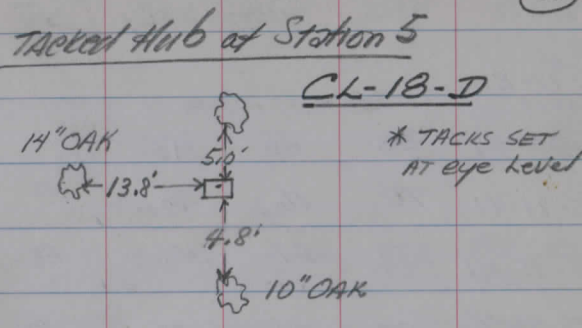 TACKed Hub at Station 5
CL-18-D
14" OAK
* TACKS SET
AT eye Level
13.8'
4.8'
10" OAK